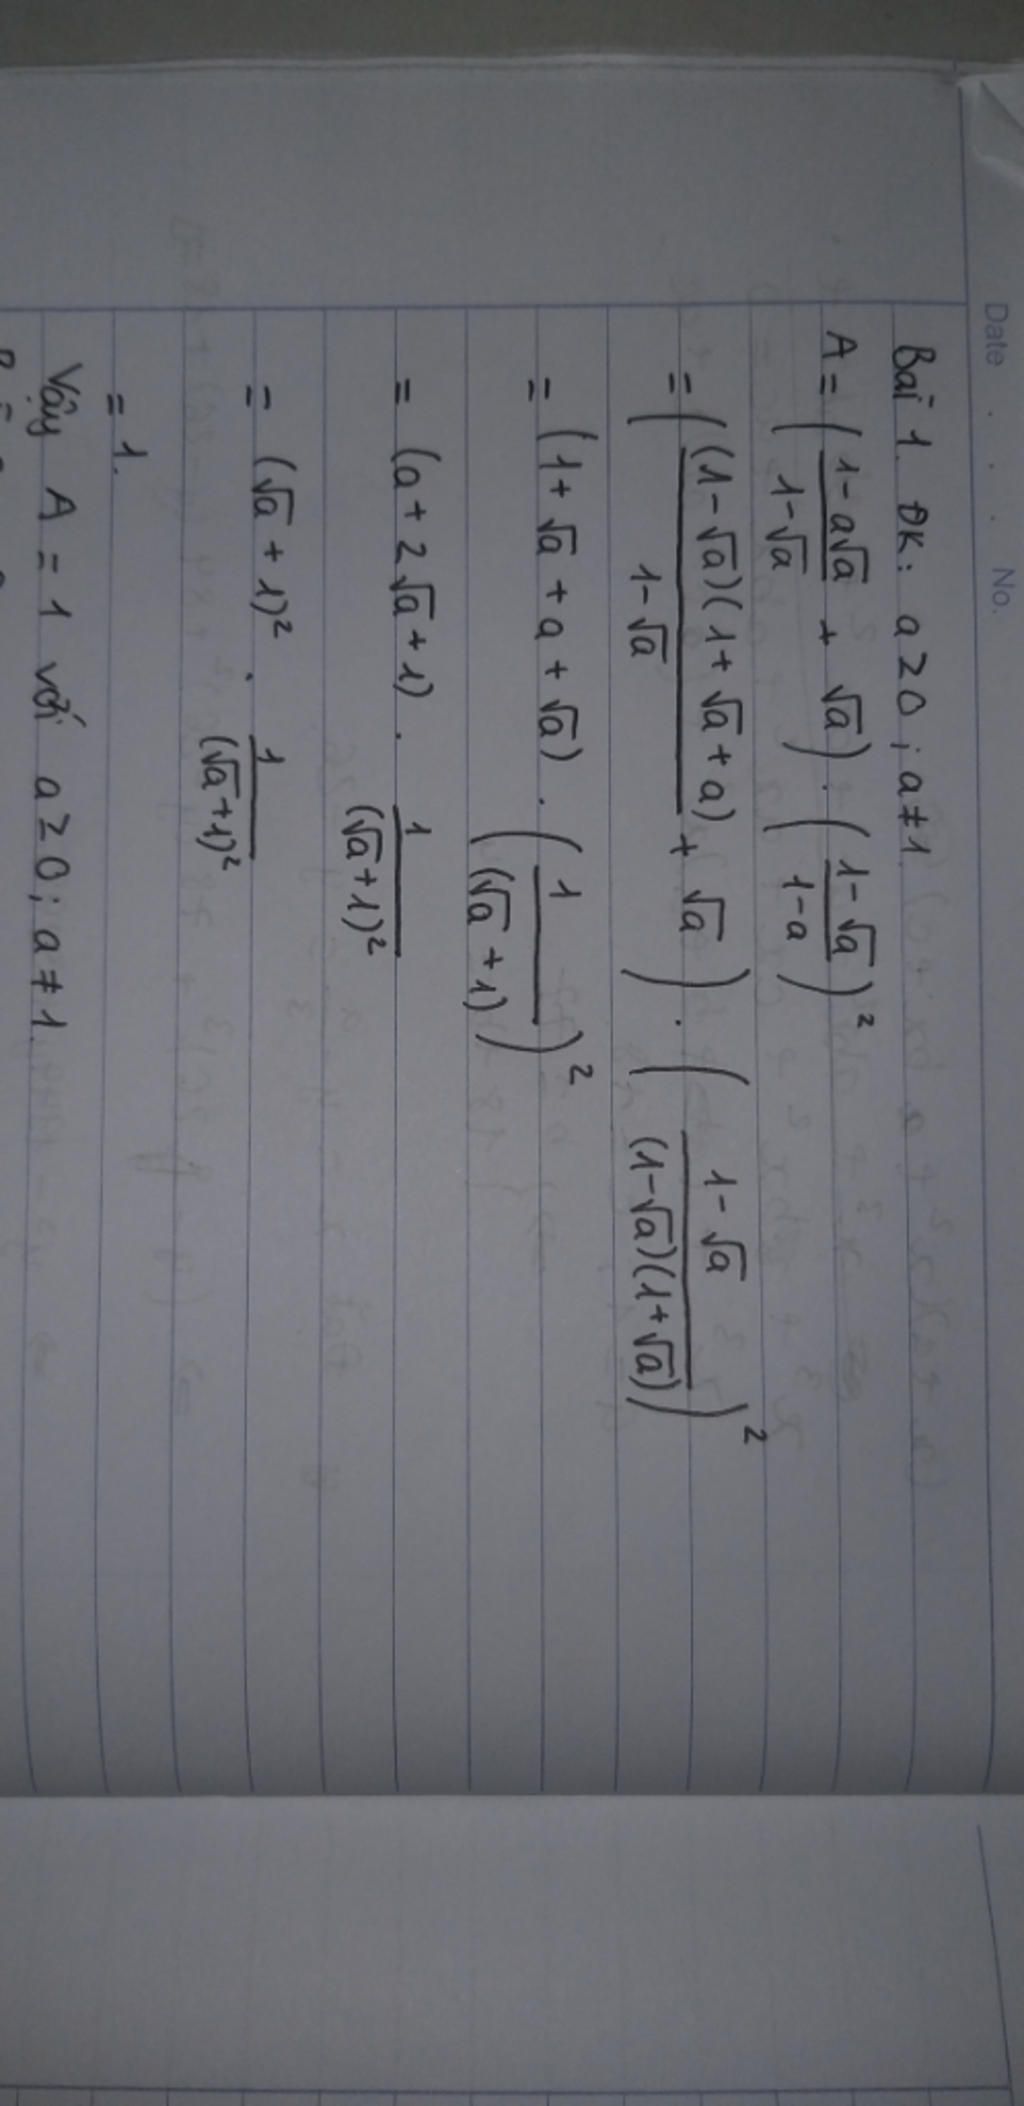 Date . . . No.
Bài 1. ĐK: a ≥ 0 ; a ≠ 1.
A = ( (1 - a√a)/(1 - √a) + √a ) . ( (1 - √a)/(1 - a) )²
= ( ((1 - √a)(1 + √a + a))/(1 - √a) + √a ) . ( (1 - √a)/((1 - √a)(1 + √a)) )²
= (1 + √a + a + √a) . ( 1/(√a + 1) )²
= (a + 2√a + 1) . 1/(√a + 1)²
= (√a + 1)² . 1/(√a + 1)²
= 1.
Vậy A = 1 với a ≥ 0 ; a ≠ 1.